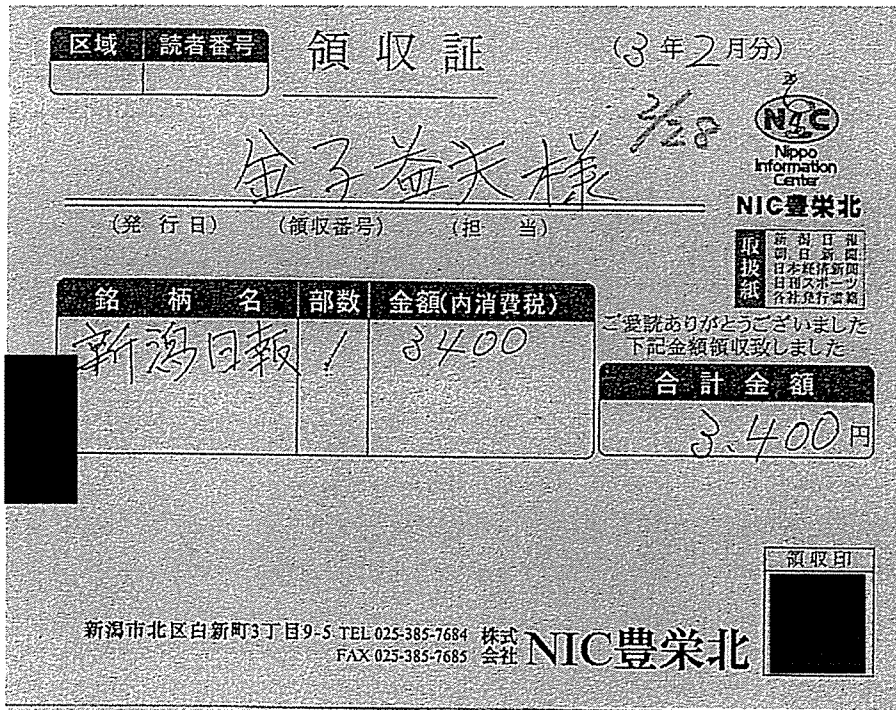 区域 読者番号
領収証
(3年2月分)
2/28
金子益夫様
NIC
Nippo
Information
Center
NIC豊栄北
(発行日) (領収番号) (担当)
取扱紙
新潟日報
朝日新聞
日本経済新聞
日刊スポーツ
各社発行書籍
銘柄名 部数 金額(内消費税)
新潟日報 1 3400
ご愛読ありがとうございました
下記金額領収致しました
合計金額
3,400円
領収印
新潟市北区白新町3丁目9-5 TEL 025-385-7684
FAX 025-385-7685
株式会社 NIC豊栄北